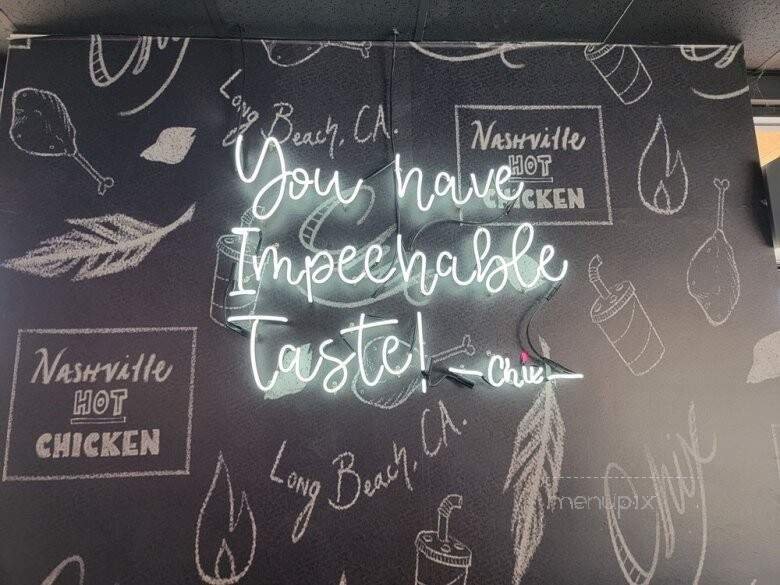 Chix
Long Beach, CA.
Nashville
HOT
CHICKEN
You have
Impechable
Taste!
- Chix -
Nashville
HOT
CHICKEN
Long Beach, CA.
Chix
menupix